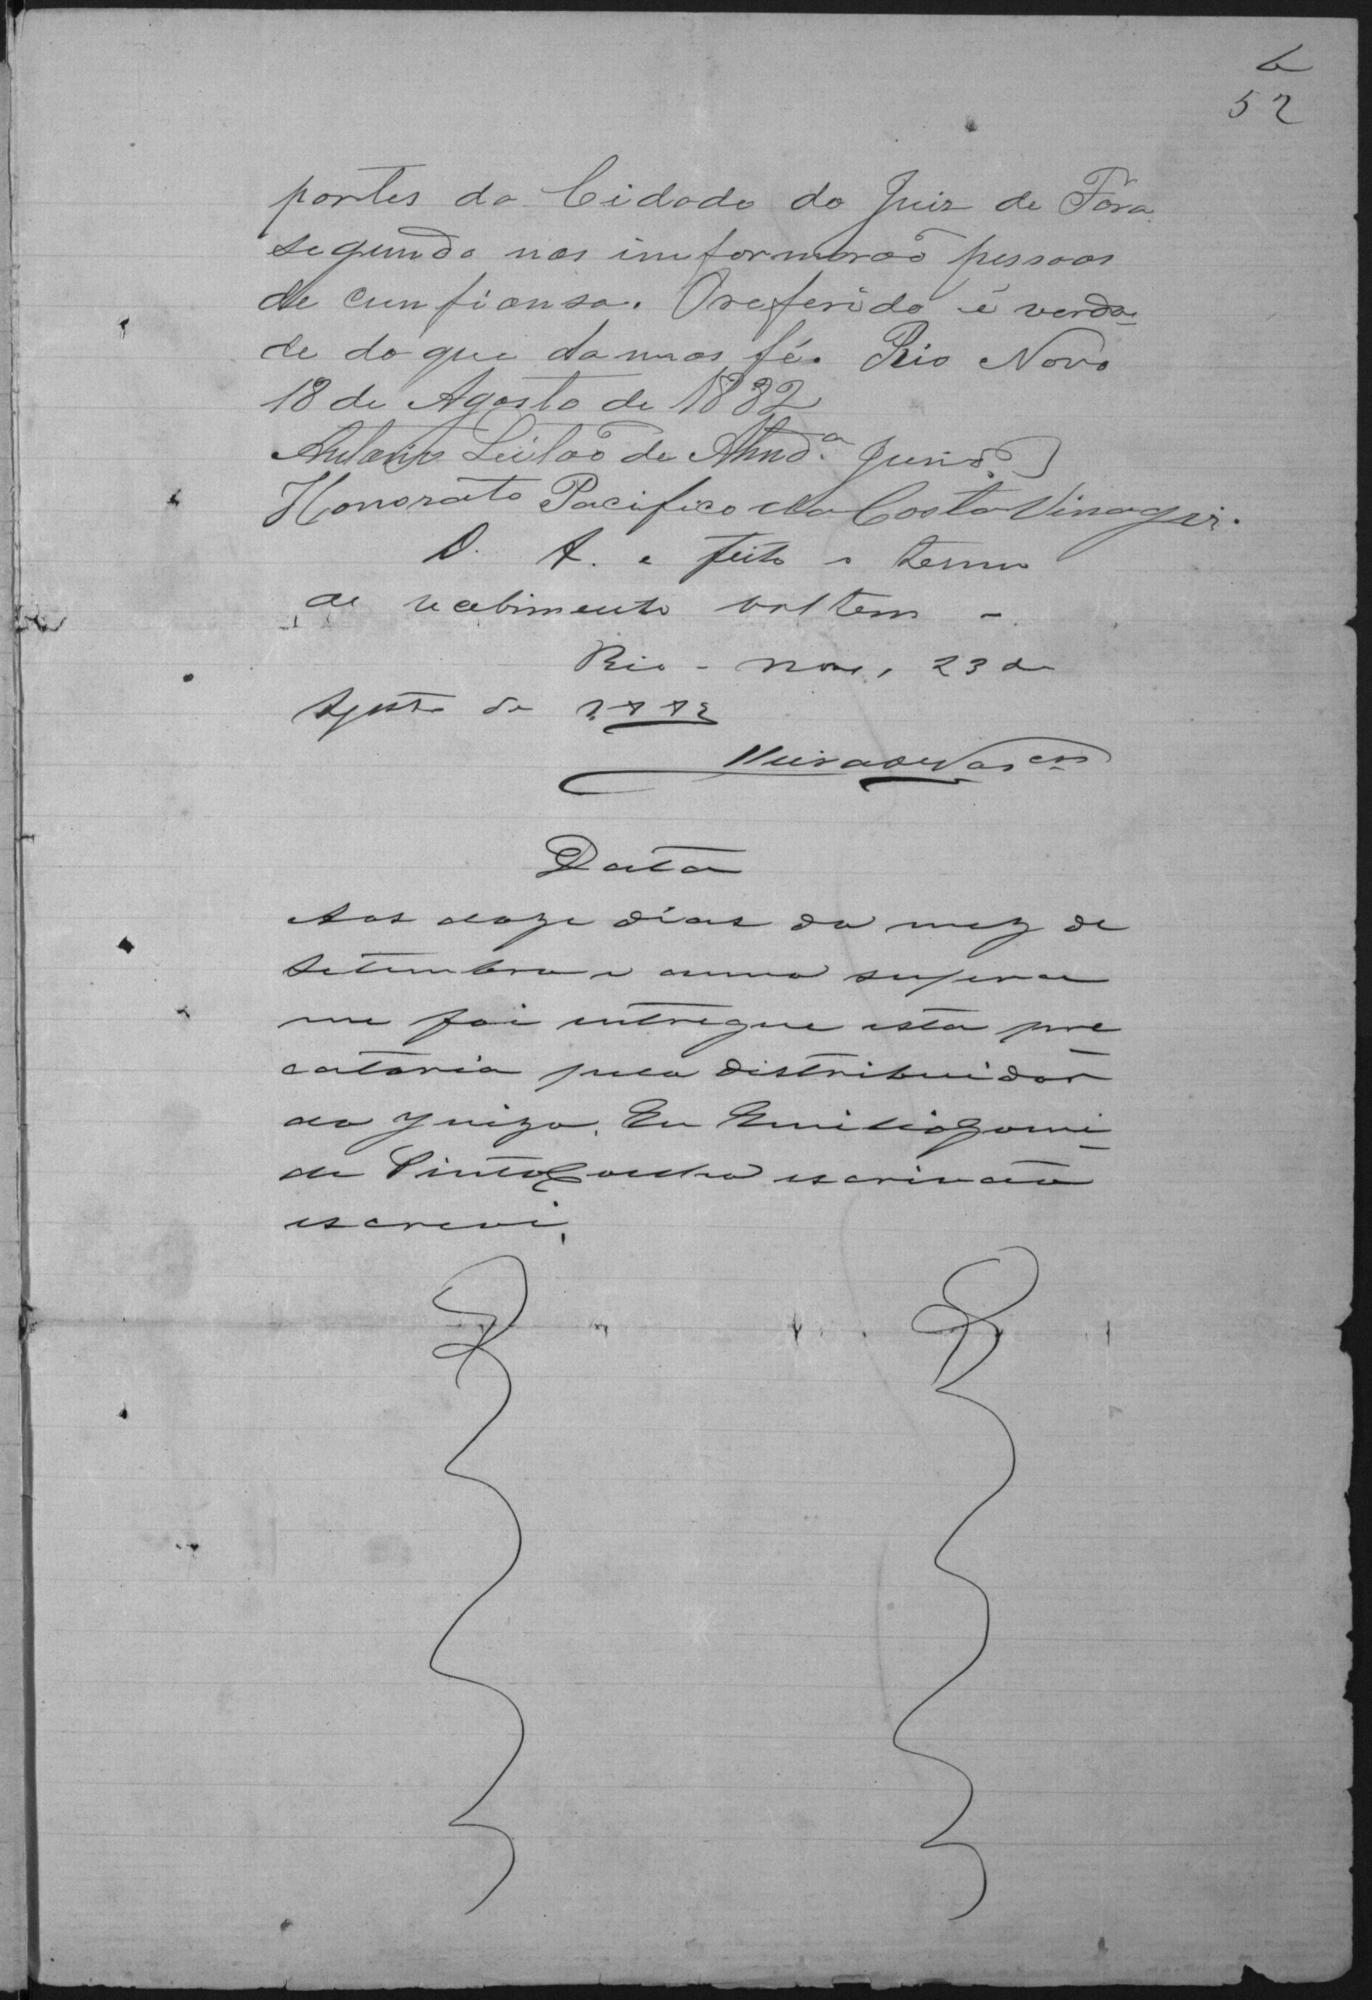 6
52
partes da Cidade do Juis de Fóra
segundo nos imformarão pessoas
de cunfiansa. Oreferido é verda-
de do que damos fé. Rio Novo
18 de Agosto de 1882
Antonio Leitão de Almd.ª Junior
Honorato Pacifico da Costa Vinagre.
D. A. e feito o termo
de recebimento voltem -
Rio - Novo, 23 de
Agosto de 1882
Data
Aos doze dias do mez de
Setembro e anno supra
me foi entregue esta pre
catoria pelo distribuidor
do Juizo. Eu Emilio Gomi-
de Pinto Coelho escrivão
escrevi.